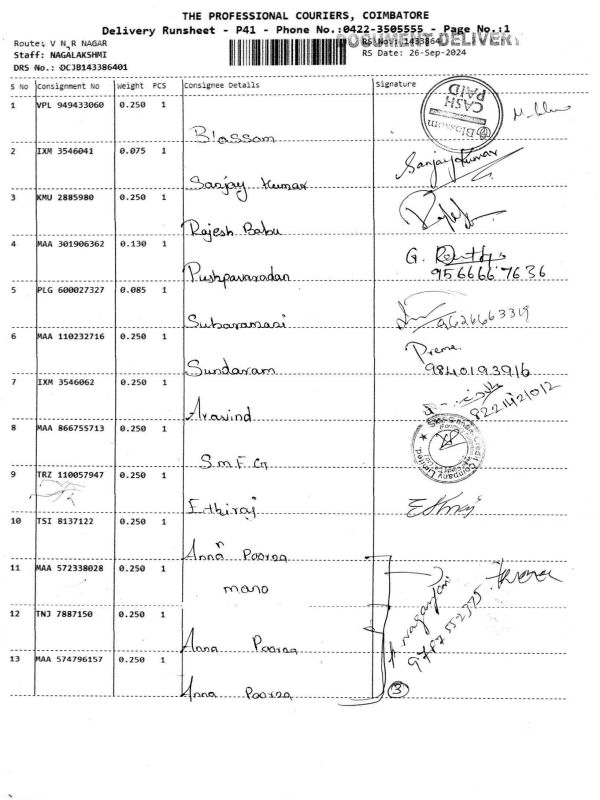 THE PROFESSIONAL COURIERS, COIMBATORE
Delivery Runsheet - P41 - Phone No.:0422-3505555 - Page No.:1
DOCUMENT DELIVERY
Route: V N R NAGAR
RS No.: 1433864
Staff: NAGALAKSHMI
RS Date: 26-Sep-2024
DRS No.: OCJB143386401
S No Consignment No Weight PCS Consignee Details Signature
1 VPL 949433060 0.250 1 Blossom
CASH PAID
Blossom
2 IXM 3546041 0.075 1 Sanjay Kumar Sanjay Kumar
3 KMU 2885980 0.250 1 Rajesh Babu
4 MAA 301906362 0.130 1 Pushpavaradan G.
9566667636
5 PLG 600027327 0.085 1 Subaramani 9626663319
6 MAA 110232716 0.250 1 Sundaram Preme
9840193916
7 IXM 3546062 0.250 1 Aravind
8 MAA 866755713 0.250 1 S.M.F.G
Company Limited
9 TRZ 110057947 0.250 1 Ethiraj Ethiraj
10 TSI 8137122 0.250 1 Anna Poorna
11 MAA 572338028 0.250 1 mano
12 TNJ 7887150 0.250 1 Anna Poorna
13 MAA 574796157 0.250 1 Anna Poorna
3